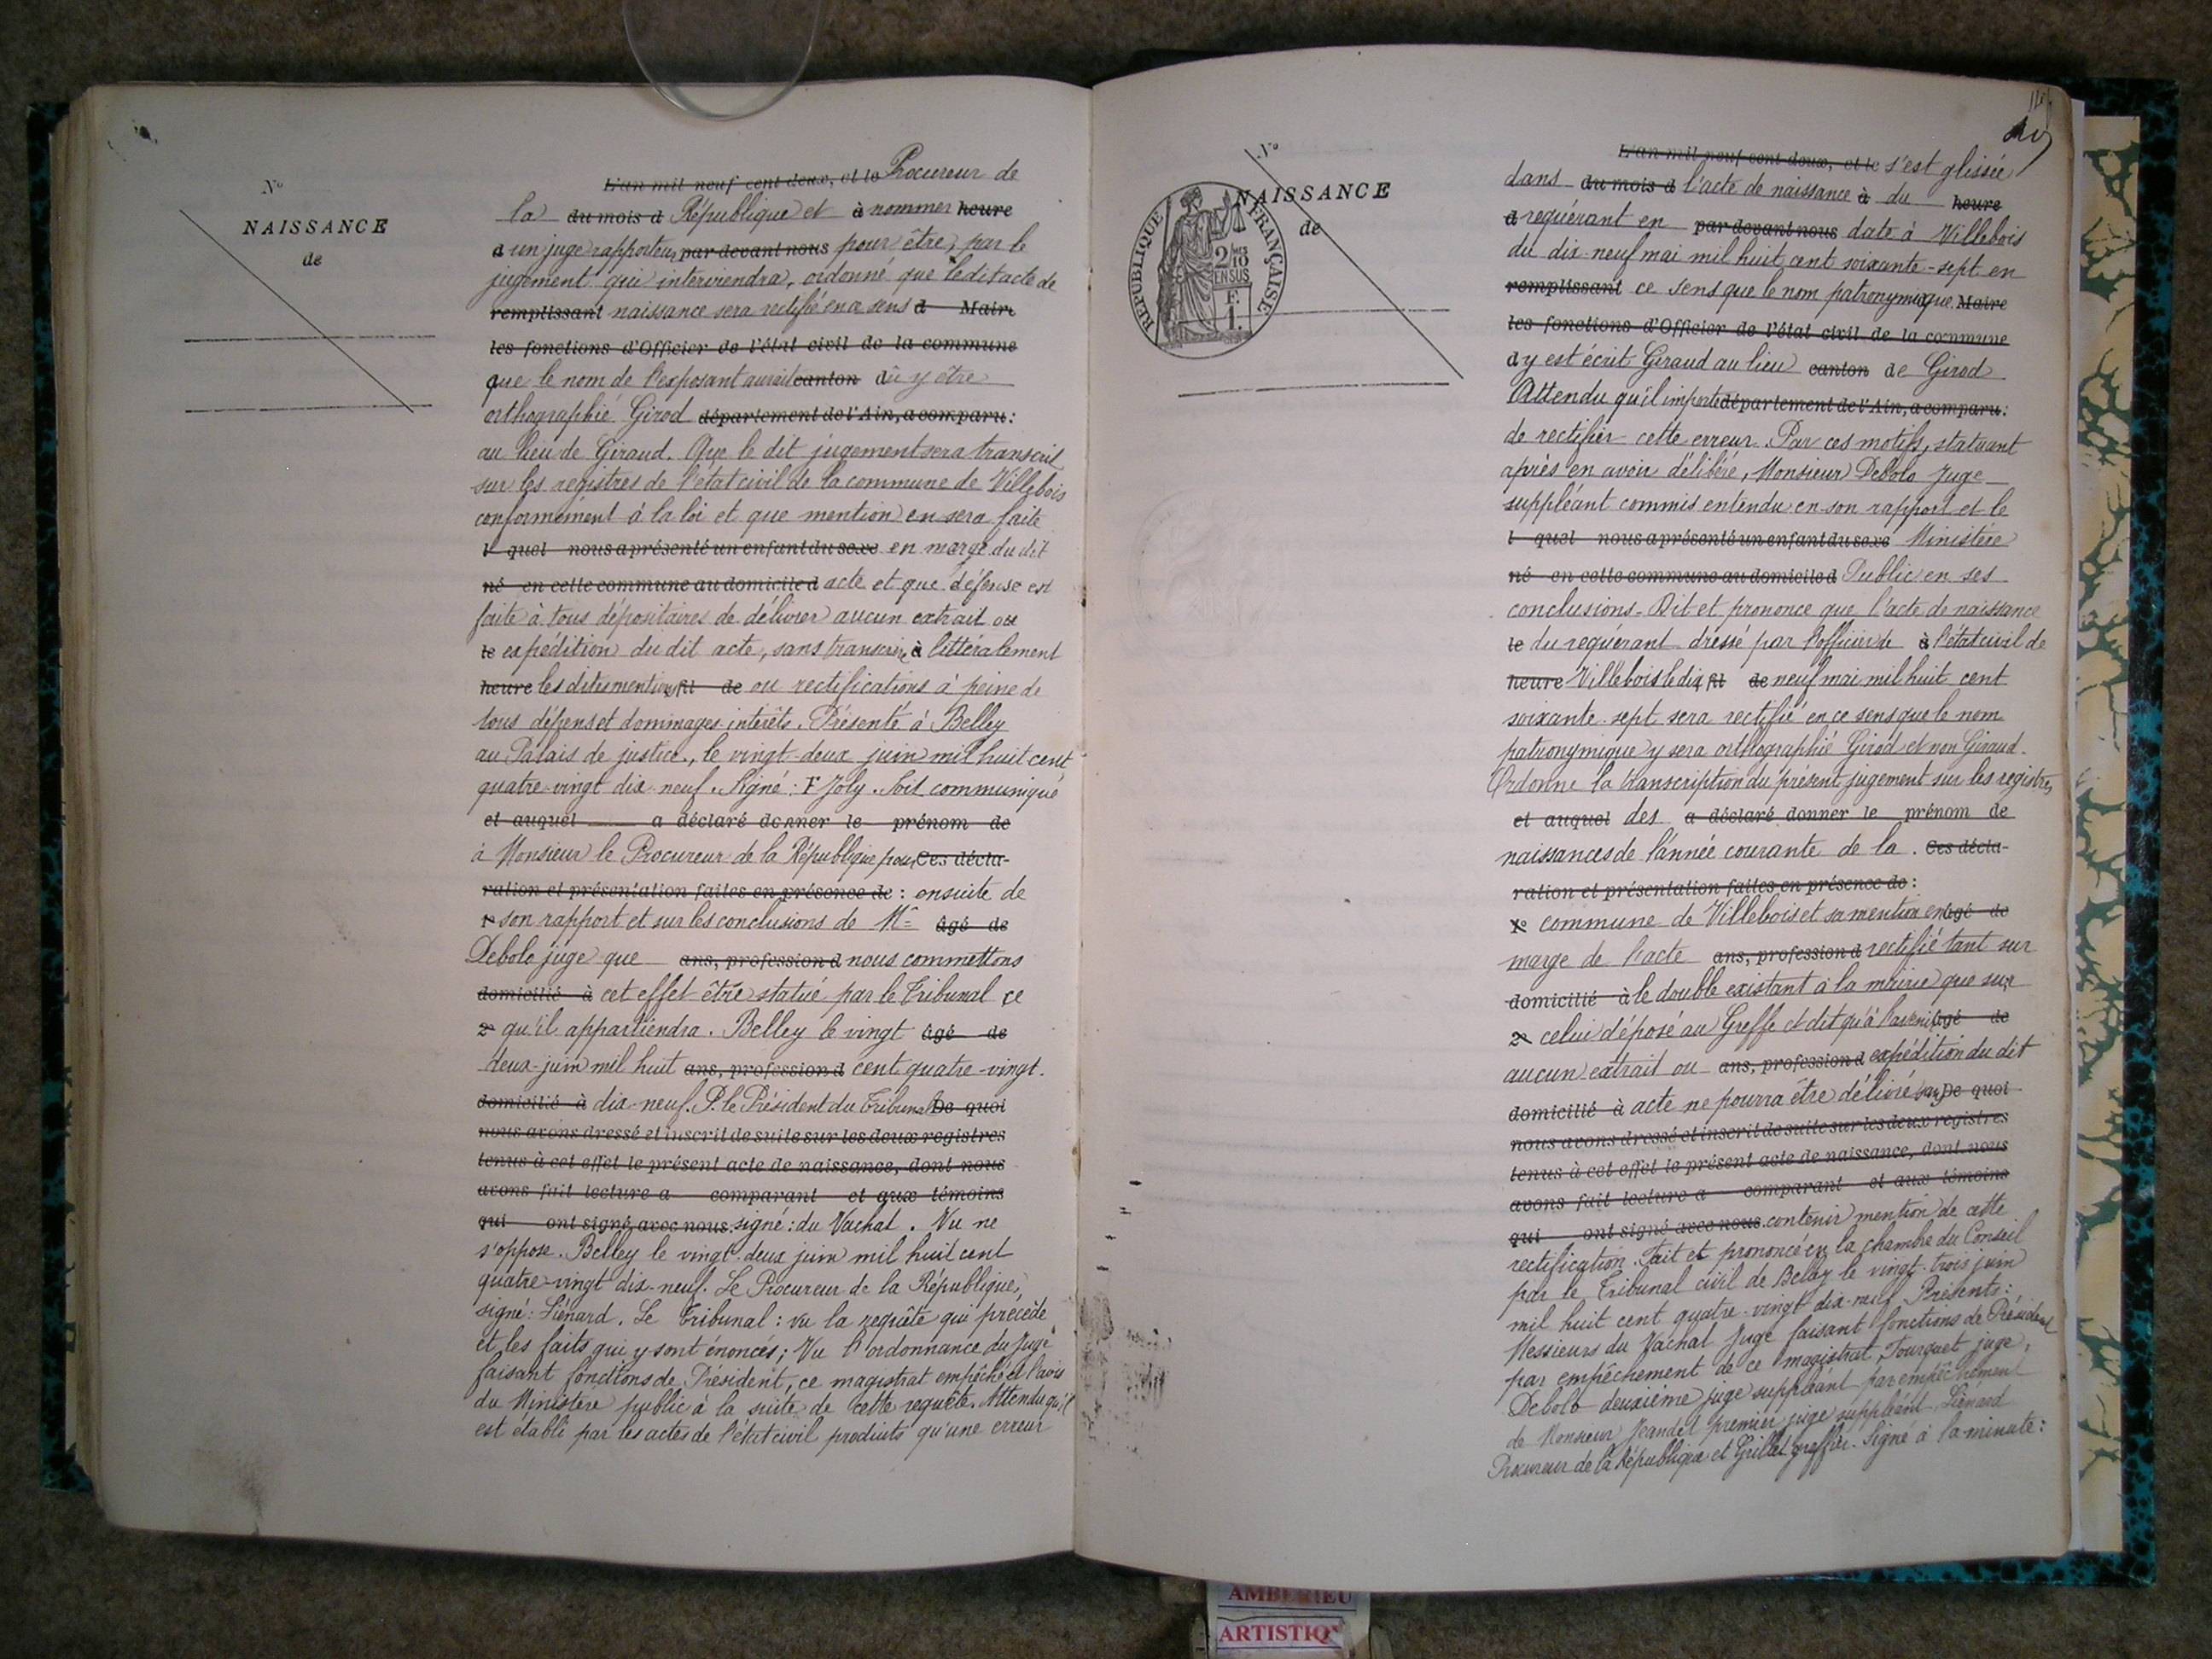 N°
NAISSANCE
de
L'an mil neuf cent deux, et le Procureur de
la du mois d République et à nommer heure
d un juge rapporteur par devant nous pour être, par le
jugement qui interviendra, ordonné que ledit acte de
remplissant naissance sera rectifié en ce sens d Maire
les fonctions d'Officier de l'état civil de la commune
que le nom de l'exposant aurait canton dû y être
orthographié Girod département de l'Ain, a comparu :
au lieu de Giraud. Que le dit jugement sera transcrit
sur les registres de l'état civil de la commune de Villebois
conformément à la loi et que mention en sera faite
l quel nous a présenté un enfant du sexe en marge du dit
né en cette commune au domicile d acte et que défense est
faite à tous dépositaires de délivrer aucun extrait ou
le expédition du dit acte, sans transcrire à littéralement
heure les dites mentions fil de ou rectifications à peine de
tous dépens et dommages-intérêts. Présenté à Belley
au Palais de justice, le vingt-deux juin mil huit cent
quatre-vingt dix-neuf. Signé : F Joly. Soit communiqué
et auquel a déclaré donner le prénom de
à Monsieur le Procureur de la République pour Ces décla-
ration et présentation faites en présence de : ensuite de
1° son rapport et sur les conclusions de Mr âgé de
Debolo juge que ans, profession d nous commettons
domicilié à cet effet être statué par le Tribunal ce
2° qu'il appartiendra. Belley le vingt âgé de
deux juin mil huit ans, profession d cent quatre-vingt.
domicilié à dix-neuf. P. le Président du Tribunal De quoi
nous avons dressé et inscrit de suite sur les deux registres
tenus à cet effet le présent acte de naissance, dont nous
avons fait lecture a comparant et aux témoins
qui ont signé avec nous. signé : du Vachat. Vu ne
s'oppose. Belley le vingt-deux juin mil huit cent
quatre-vingt dix-neuf. Le Procureur de la République,
signé : Liénard. Le Tribunal : vu la requête qui précède
et les faits qui y sont énoncés ; Vu l'ordonnance du Juge
faisant fonctions de Président, ce magistrat empêché et l'avis
du Ministère public à la suite de cette requête. Attendu qu'il
est établi par les actes de l'état civil produits qu'une erreur
N°
NAISSANCE
de
RÉPUBLIQUE FRANÇAISE
2/10
EN SUS
F.
1.
L'an mil neuf cent deux, et le s'est glissée
dans du mois d l'acte de naissance à du heure
d requérant en par devant nous date à Villebois
du dix-neuf mai mil huit cent soixante-sept en
remplissant ce sens que le nom patronymique Maire
les fonctions d'Officier de l'état civil de la commune
d y est écrit Giraud au lieu canton de Girod
Attendu qu'il importe département de l'Ain, a comparu :
de rectifier cette erreur. Par ces motifs, statuant
après en avoir délibéré, Monsieur Debolo Juge
suppléant commis entendu en son rapport et le
l quel nous a présenté un enfant du sexe Ministère
né en cette commune au domicile d Public en ses
conclusions - Dit et prononce que l'acte de naissance
le du requérant dressé par l'officier de à l'état civil de
heure Villebois le dix fil de neuf mai mil huit cent
soixante-sept sera rectifié en ce sens que le nom
patronymique y sera orthographié Girod et non Giraud.
Ordonne la transcription du présent jugement sur les registres
et auquel des a déclaré donner le prénom de
naissances de l'année courante de la . Ces décla-
ration et présentation faites en présence de :
1° commune de Villebois et sa mention en âgé de
marge de l'acte ans, profession d rectifié tant sur
domicilié à le double existant à la mairie que sur
2° celui déposé au Greffe et dit qu'à l'avenir âgé de
aucun extrait ou ans, profession d expédition du dit
domicilié à acte ne pourra être délivré sans De quoi
nous avons dressé et inscrit de suite sur les deux registres
tenus à cet effet le présent acte de naissance, dont nous
avons fait lecture a comparant et aux témoins
qui ont signé avec nous. contenir mention de cette
rectification. Fait et prononcé en la chambre du Conseil
par le Tribunal civil de Belley le vingt-trois juin
mil huit cent quatre-vingt dix-neuf. Présents :
Messieurs du Vachat Juge faisant fonctions de Président
par empêchement de ce magistrat, Tourquet juge,
Debolo deuxième juge suppléant par empêchement
de Monsieur Jeandet premier juge suppléant, Liénard
Procureur de la République et Grillet greffier. Signé à la minute :
AMBERIEU
ARTISTIQ